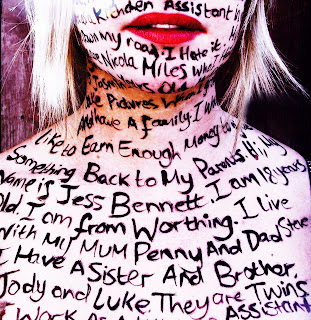 Kitchen Assistant
my road. I Hate it.
Nicola Miles Who
Old
Pictures. When
And Have A family. I W
Like to Earn Enough Money to
Something Back to My Parents. Hi, My
Name is Jess Bennett. I am 18 years
Old. I am from Worthing. I Live
With My MUM Penny And Dad Steve
I Have A Sister And Brother,
Jody and Luke. They are Twins
I Work As A Assistant